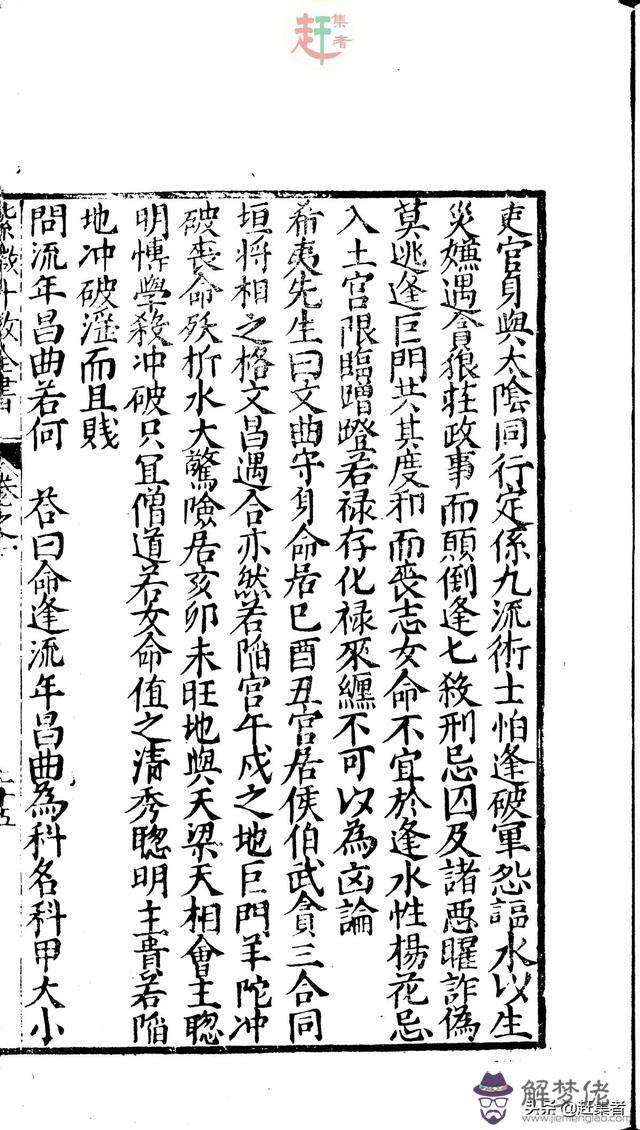 赶集者
吏官身與太陰同行定係九流術士怕逢破軍怨謳水以生
災嫌遇貪狼莊政事而顛倒逢七殺刑忌囚及諸惡曜詐偽
莫逃逢巨門共其度和而喪志女命不宜於逢水性楊花忌
入土宮限臨蹭蹬若禄存化禄來纏不可以為凶論
希夷先生曰文曲守身命居巳酉丑宮居侯伯武貪三合同
垣將相之格文昌遇合亦然若陷宮午戍之地巨門羊陀冲
破喪命殀折水大驚險居亥卯未旺地與天梁天相會主聰
明博學殺冲破只宜僧道若女命值之清秀聰明主貴若陷
地冲破滛而且賎
問流年昌曲若何　荅曰命逢流年昌曲為科名科甲大小
微斗数全書
卷之一
十五
头条@赶集者
解梦佬
www.jiemenglab.com